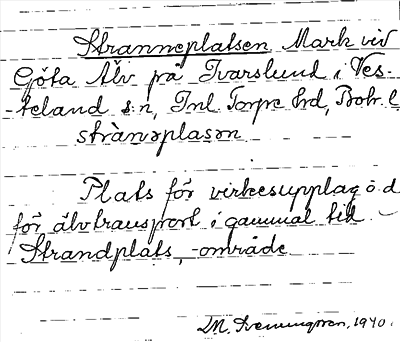 Stranneplatsen Mark vid
Göta Älv på Ivarslund i Ves-
-terland s:n, Inl. Torpe hd, Boh. l
strànəplasən
Plats för virkesupplag o.d
för älvtransport i gammal tid -
Strandplats, -område
1940.